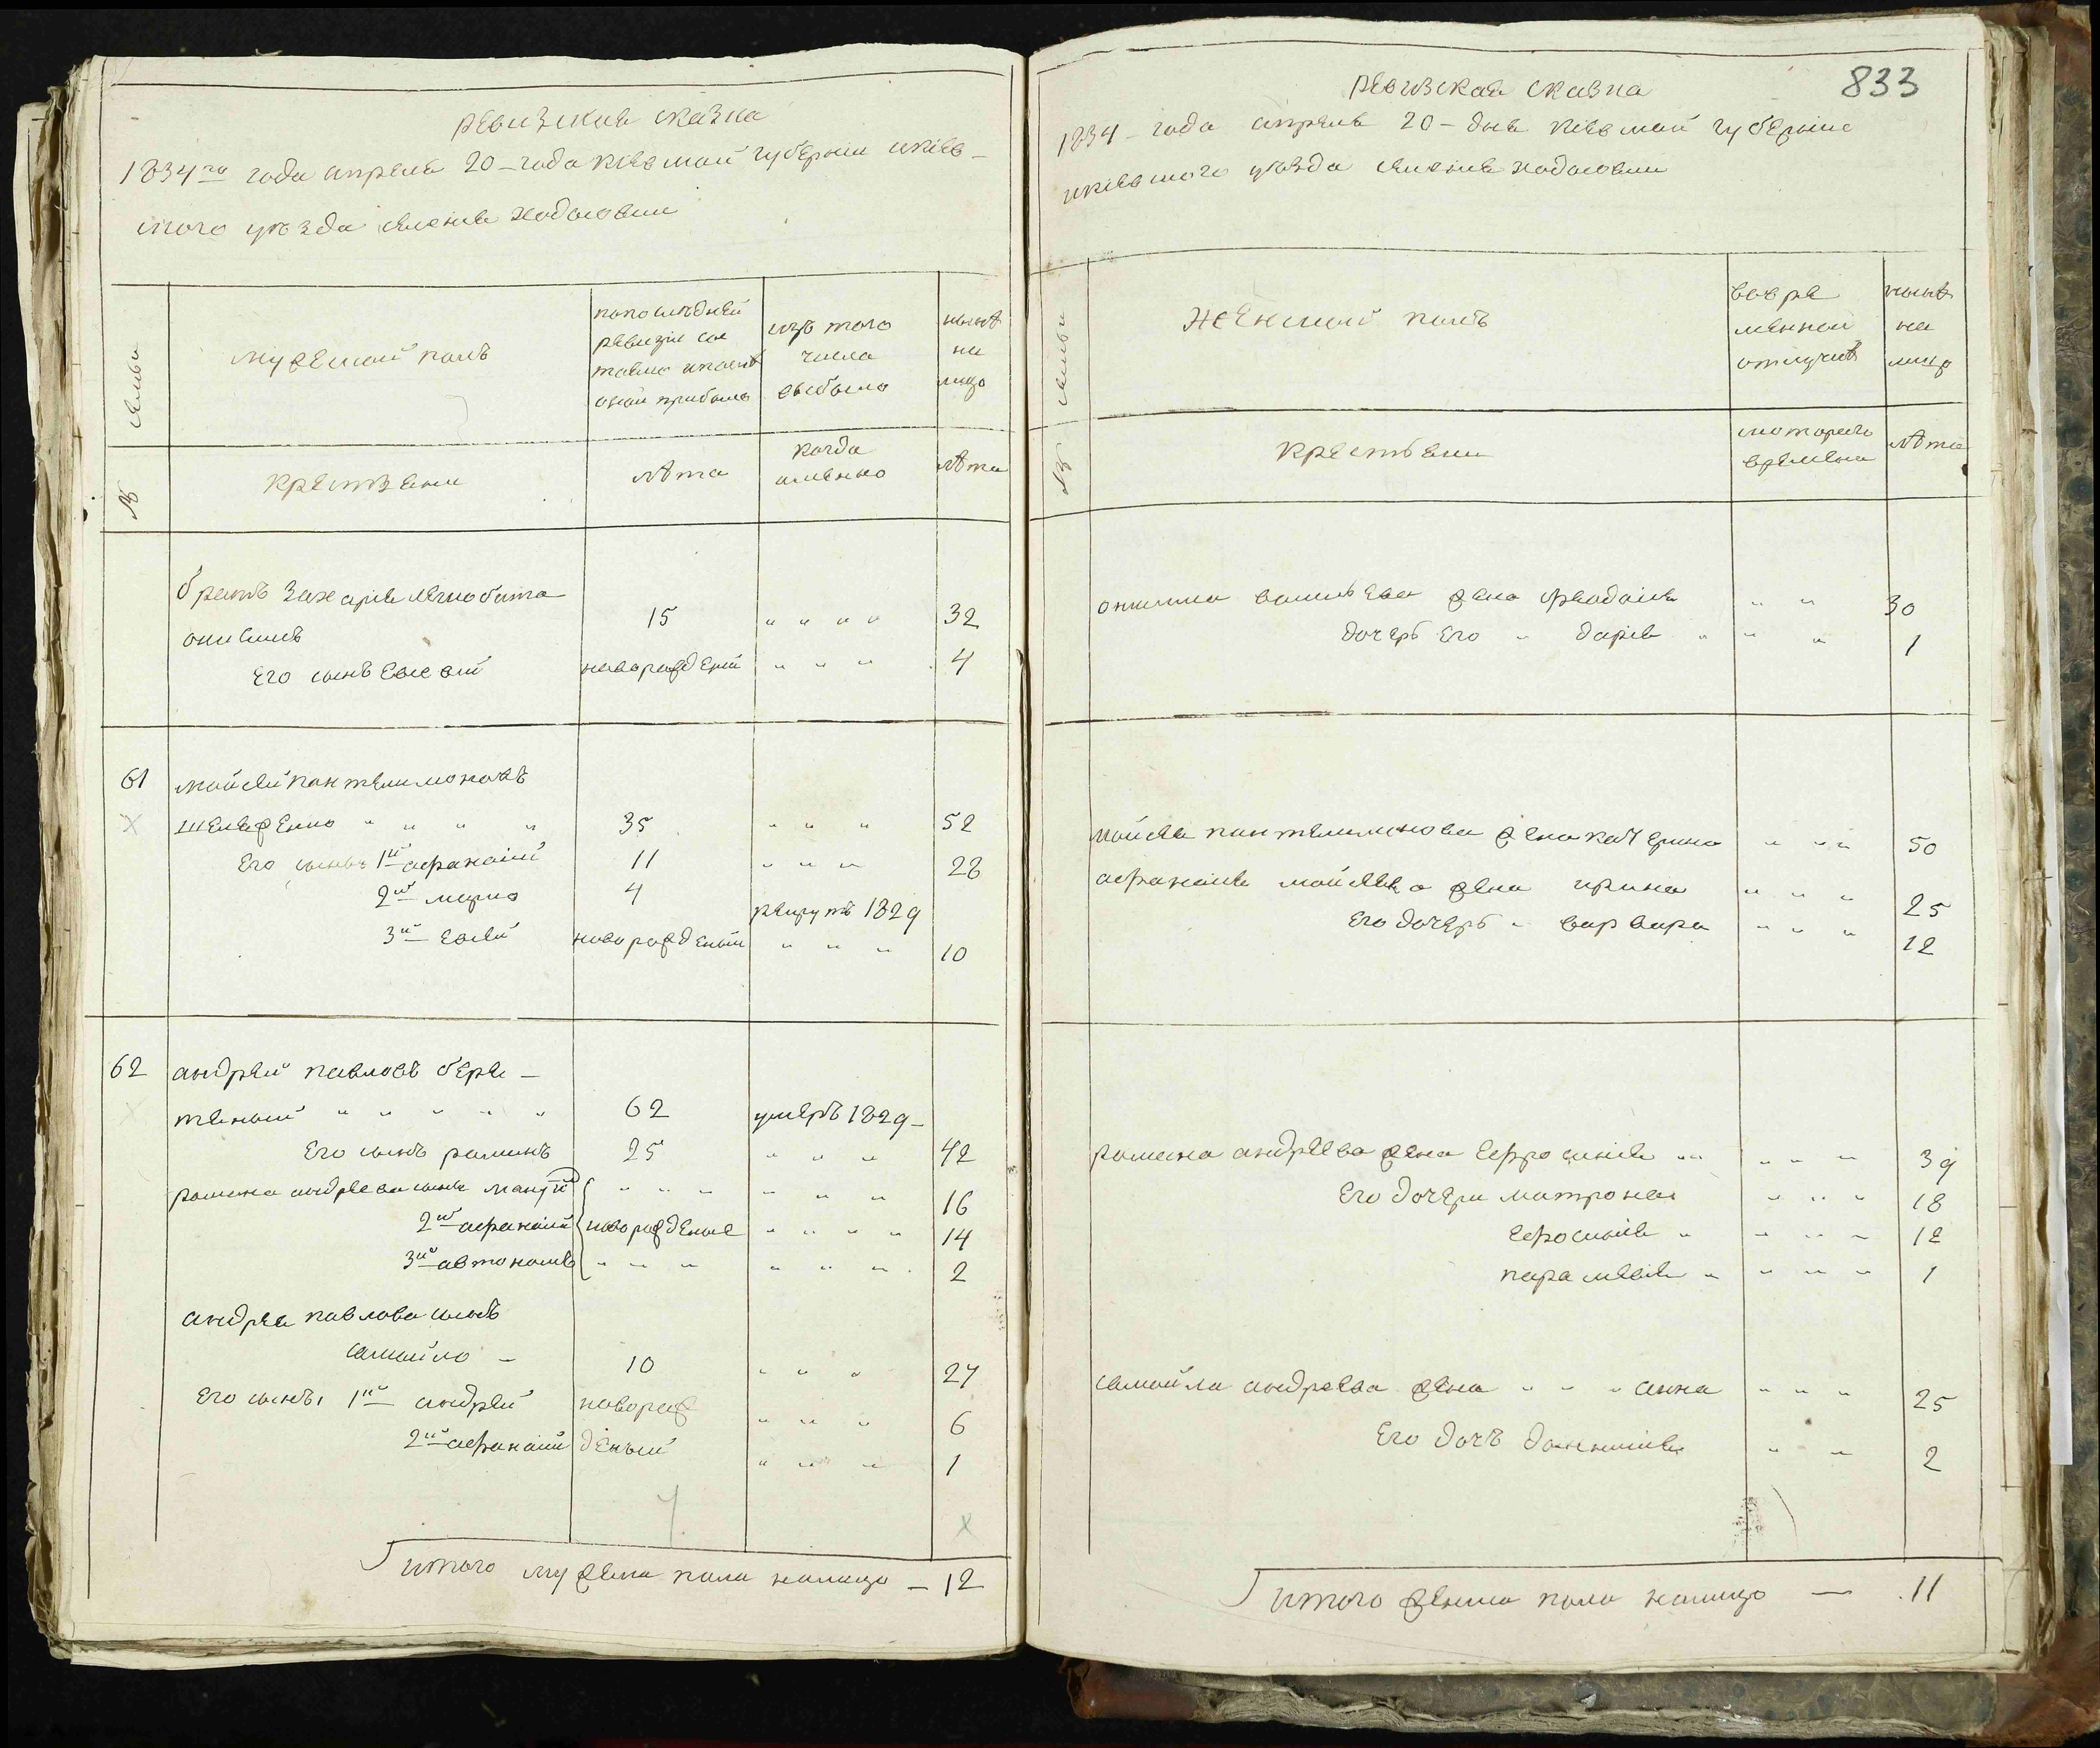 ревизская сказка
1834го года апреля 20-года киевской губернии икиев-
ского уѣзда селения ходосовки
семьи
мужеской полъ
попоследней
ревизіи сос
тояло ипослѣ
оной прибыло
изъ того
числа
выбыло
нынѣ
на
лицо
№
крестьяни
лѣта
когда
именно
лѣта
братъ Захарія
15 " " " " 32
Его сынъ Евсевий новорожденый " " " 4
61 мойсей пантелимоновъ
" " " " 35 " " " 52
Его сыны 1й афанасий 11 " " " 28
2й марко 4 рекрутъ 1829
3й Евсей новорожденый " " " 10
62 андрей павловъ бере-
теный " " " " " 62 умеръ 1829-
Его сынъ романъ 25 " " " 42
романа андреева сыны " " " " " " 16
2й афанасий новорожденые " " " " 14
3й автономъ " " " " " " 2
андрея павлова сынъ
самойло - 10 " " " 27
Его сынъı 1й андрей новорож " " " 6
2й афанасий деный " " " 1
итого мужеска пола налицо - 12
833
ревизская сказка
1834- года апреля 20-дня киевской губерніи
икиевского уѣзда селения ходосовки
семьи
женской полъ
вовре
менной
отлучкѣ
нынѣ
на
лицо
№
крестьяни
скоторого
времени
лѣта
васильева жена феодосия " " 30
дочерь Его " дарія " " " 1
мойсея пантелимонова жена катерина " " " 50
афанасия мойсеева жена ирина " " " 25
Его дочерь " варвара " " " 12
романа андреева жена Ефросиния " " " " " 39
Его дочери матрона " " " 18
Ефросиния " " " " 12
параскевия " " " " 1
самойла андреева жена " " " анна " " " 25
Его дочъ " " 2
итого женска пола налицо — 11